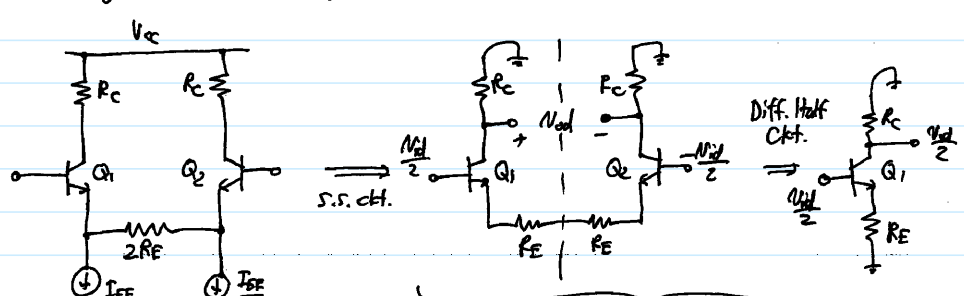 Vcc
Rc Rc
Q1 Q2
2RE
IEE IEE
s.s. ckt.
Rc Rc
Vod
+ -
Vid/2 -Vid/2
Q1 Q2
RE RE
Diff. Half
Ckt.
Rc
Vod/2
Vid/2
Q1
RE